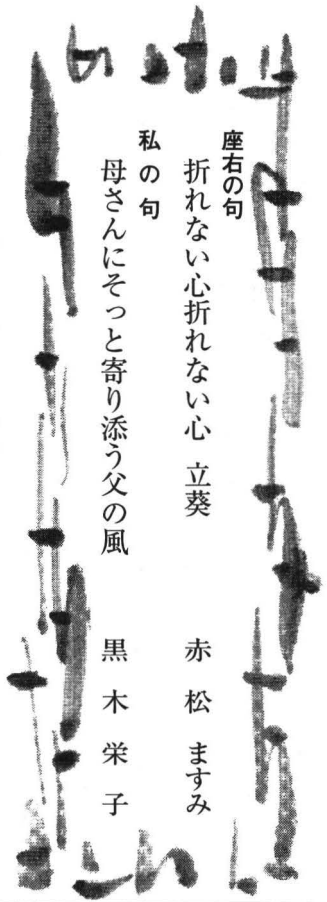 座右の句
折れない心折れない心　立葵　赤松ますみ
私の句
母さんにそっと寄り添う父の風　黒木栄子